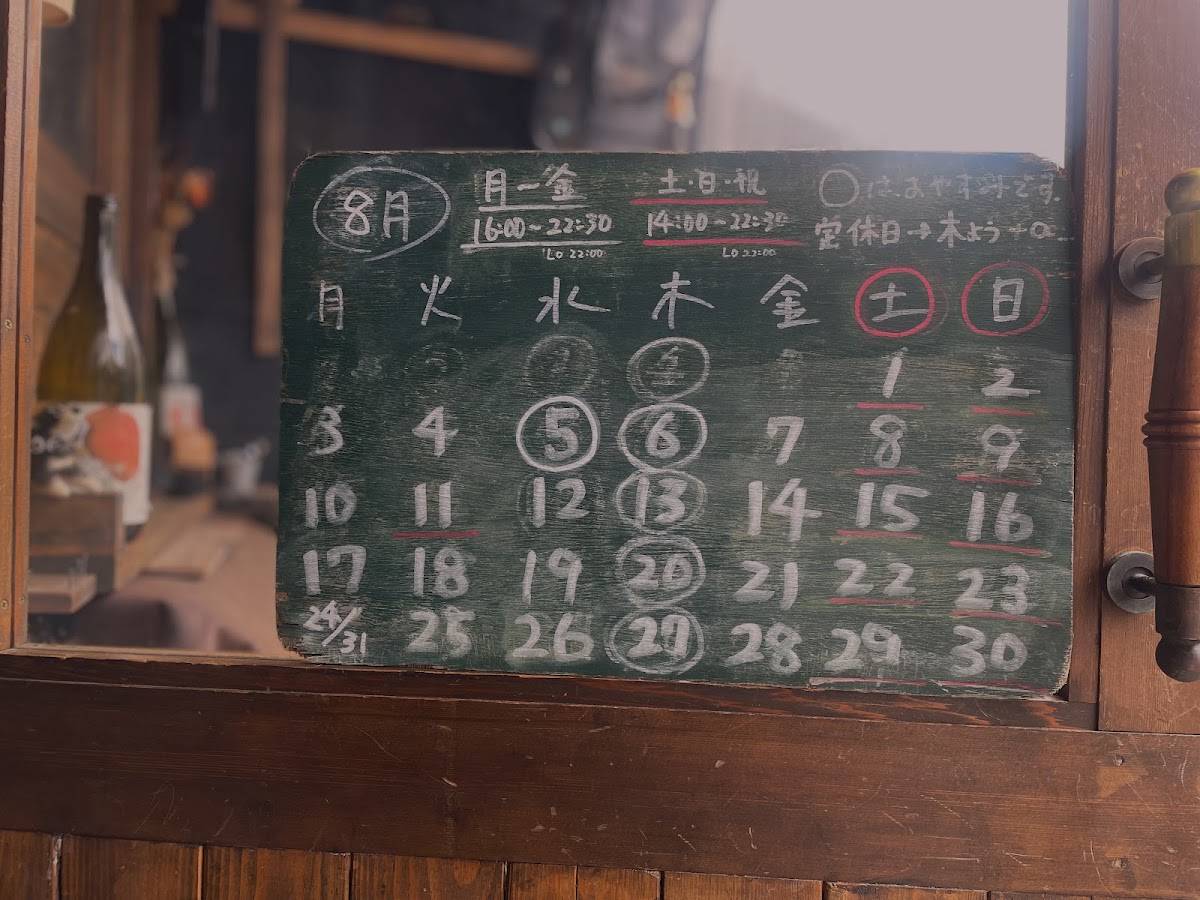 8月 月ー金 土・日・祝 ◯は、おやすみです。
16:00〜22:30 14:00〜22:30 定休日→木よう+α
Lo 22:00 Lo 22:00
月 火 水 木 金 土 日
1 2
3 4 5 6 7 8 9
10 11 12 13 14 15 16
17 18 19 20 21 22 23
24/31 25 26 27 28 29 30